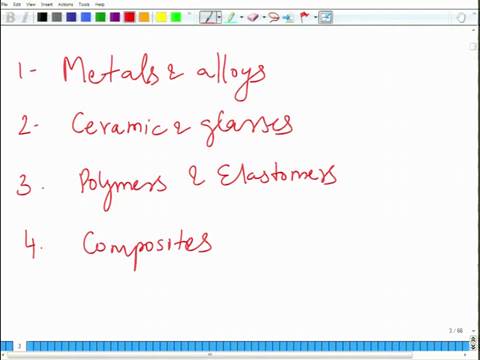 File Edit View Insert Actions Tools Help
1- Metals & alloys
2- Ceramic & glasses
3. Polymers & Elastomers
4. Composites
3 / 66
3